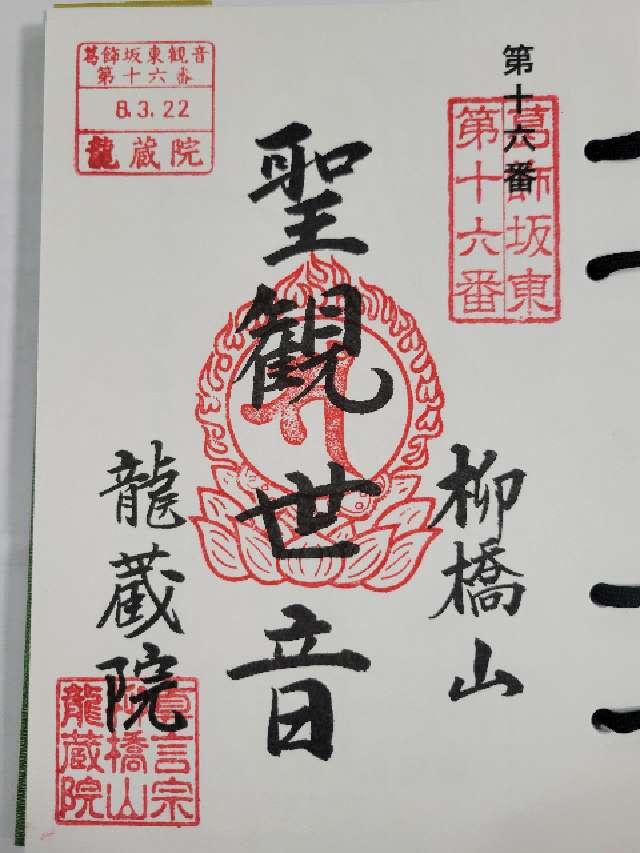 第十六番
葛飾坂東
第十六番
柳橋山
聖観世音
龍蔵院
葛飾坂東観音
第十六番
8.3.22
龍蔵院
真言宗
柳橋山
龍蔵院